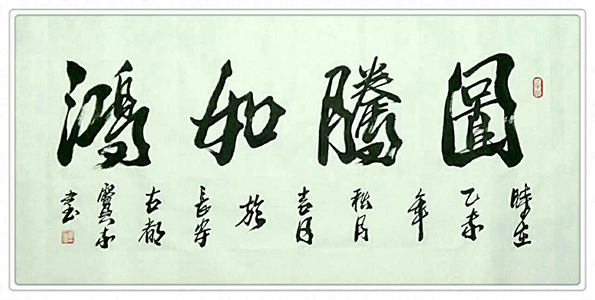 圖騰如鴻
時在
乙未
年
秋月
吉日
於
長安
古都
書